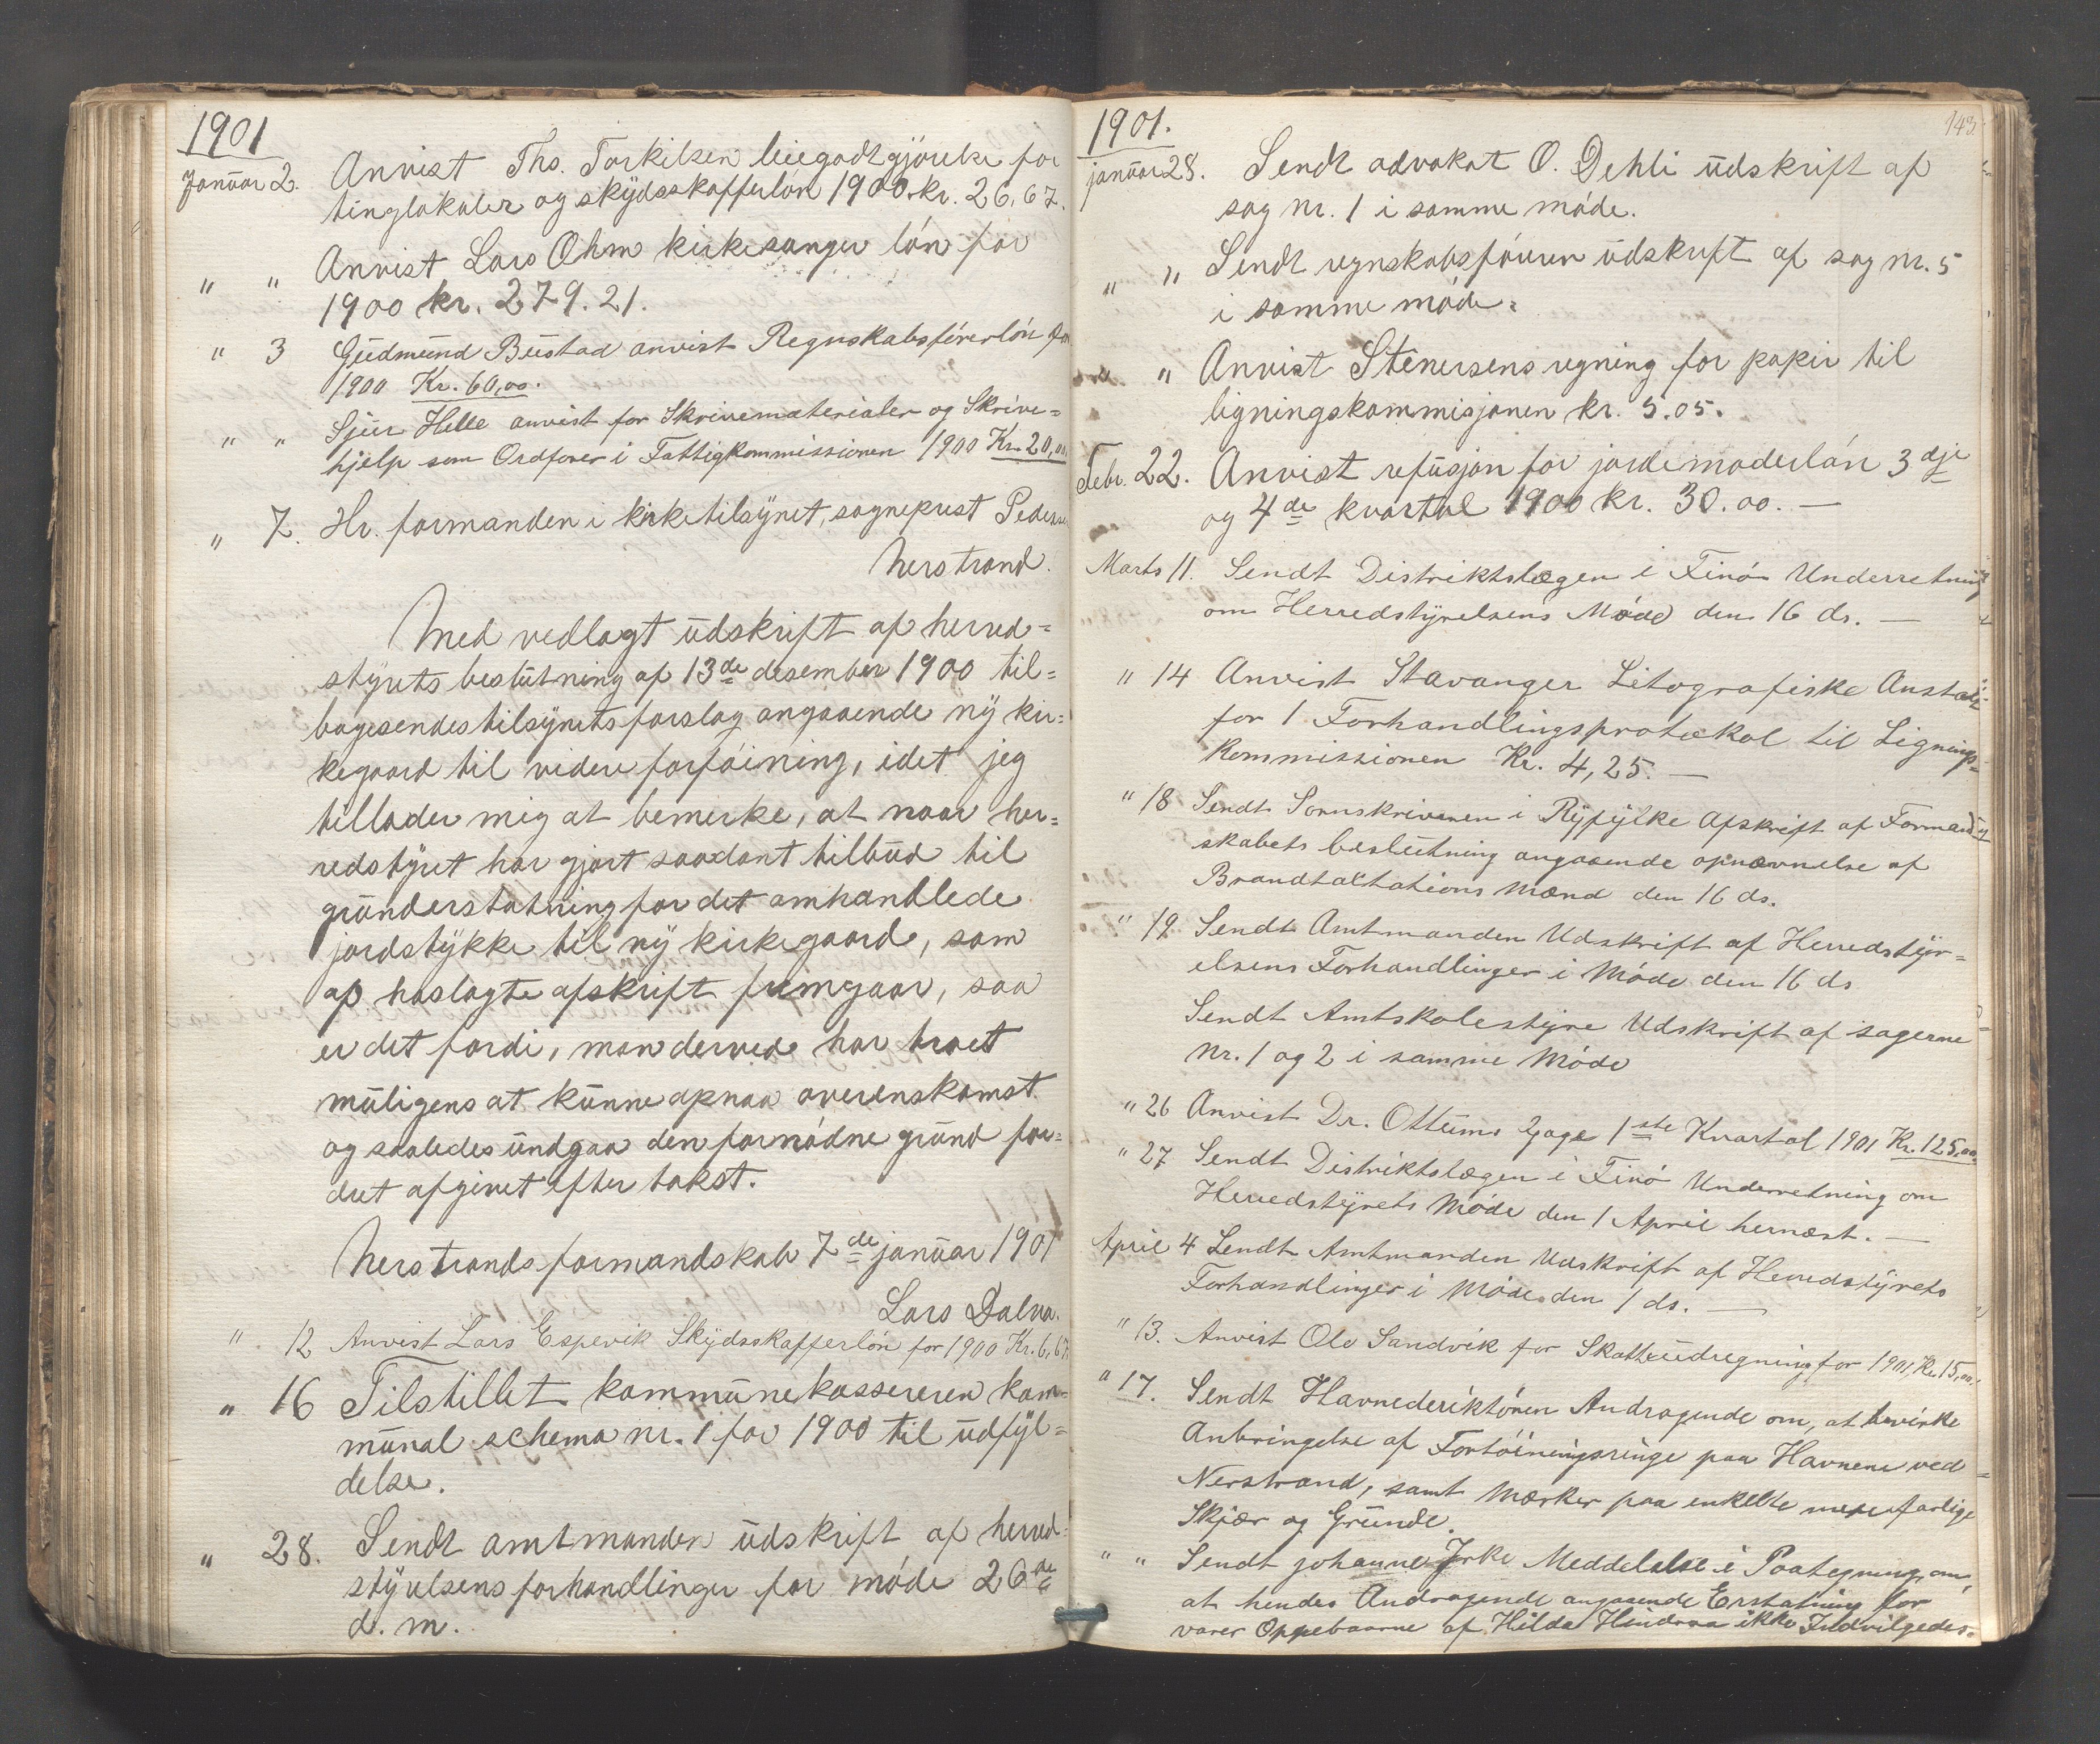 1901
Januar 2. Anvist Ths. Torkilsen leiegodtgjørelse for
tinglokaler og skydsskafferløn 1900 kr. 26,67.
" " Anvist Lars Ohm kirkesanger løn for
1900 kr. 279.21.
" 3 Gudmund Bustad anvist Regnskabsførerløn for
1900 Kr. 60,00.
" " Sjur Helle anvist for Skrivematerialer og Skrive=
hjelp som Ordfører i Fattigkommissionen 1900 Kr. 20,00
" 7. Hr. formanden i kirketilsynet, sogneprest Pedersen
Nerstrand.
Med vedlagt udskrift af herred=
styrets beslutning af 13de desember 1900 til=
bagesendes tilsynets forslag angaaende ny kir=
kegaard til videre forføining, idet jeg
tillader mig at bemerke, at naar her=
redstyret har gjort saadant tilbud til
grunderstatning for det omhandlede
jordstykke til ny kirkegaard, som
af haslagte afskrift fremgaar, saa
er det fordi, man derved har troet
muligens at kunne opnaa overenskomst
og saaledes undgaa den fornødne grund for=
dret afgivet efter takst.
Nerstrands formandskab 7de januar 1901
Lars Dalva.
" 12 Anvist Lars Espevik Skydsskafferløn for 1900 Kr. 6,67
" 16 Tilstillet kommunekassereren kom=
munal schema nr. 1 for 1900 til udfyl=
delse.
" 28. Sendt amtmanden udskrift af herred=
styrelsens forhandlinger for møde 26de
d. m.
1901.
143
januar 28. Sendt advokat O. Dehli udskrift af
sag nr. 1 i samme møde.
" " Sendt regnskabsføreren udskrift af sag nr. 5
i samme møde.
" " Anvist Stenersens regning for papir til
ligningskommisjonen kr. 5.05.
Febr. 22. Anvist refusjon for jordemoderløn 3dje
og 4de kvartal 1900 kr. 30.00. —
Marts 11. Sendt Distriktslægen i Finø Underretning
om Herredstyrelsens Møde den 16 ds. —
" 14 Anvist Stavanger Litografiske Anstalt
for 1 Forhandlingsprotokol til Lignings=
kommissionen Kr. 4,25. —
" 18 Sendt Sornskriveren i Ryfylke Afskrift af Formand
skabets beslutning angaaende opnævnelse af
Brandtaxtations Mænd den 16 ds.
" 19 Sendt Amtmanden Udskrift af Herredstyr=
elsens Forhandlinger i Møde den 16 ds
Sendt Amtskolestyre Udskrift af sagerne
Nr. 1 og 2 i samme Møde
" 26 Anvist Dr. Ottums Gage 1ste Kvartal 1901 Kr. 125,00
" 27 Sendt Distriktslægen i Finø Underretning om
Herredstyrets Møde den 1 April hernæst. —
April 4 Sendt Amtmanden Udskrift af Herredstyrets
Forhandlinger i Møde den 1 ds. —
" 13. Anvist Ole Sandvik for Skatteudregning for 1901, Kr. 15,00.
" 17. Sendt Havnederiktøren Andragende om, at bevirke
Anbringelse af Fortøiningsringe paa Havnene ved
Nerstrand, samt Mærker paa enkelte mere farlige
Skjær og Grunde.
" " Sendt Johanne Meddelelse i Paategning, om,
at hendes Andragende angaaende Erstatning for
varer Oppebaarne af Hilda Hindraa ikke Indvilgedes.